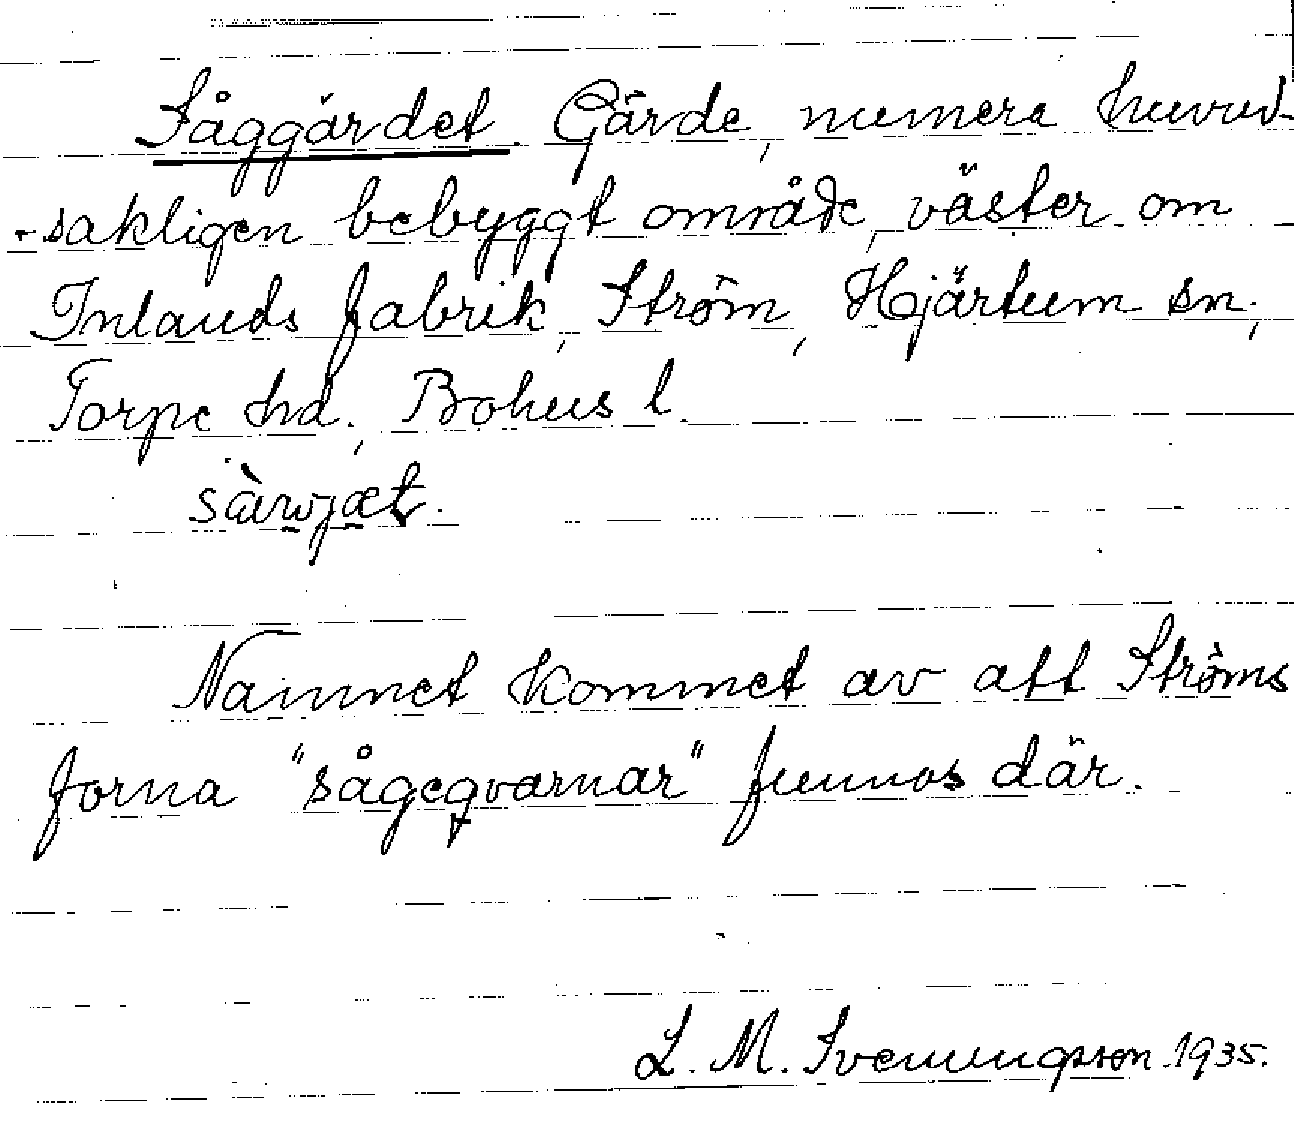 Såggärdet. Gärde, numera huvud-
-sakligen bebyggt område, väster om
Inlands fabrik, Ström, Hjärtum sn.,
Torpe hd., Bohus l.
Namnet kommet av att Ströms
forna "sågeqvarnar" funnos där.
L. M. Svenungsson 1935.